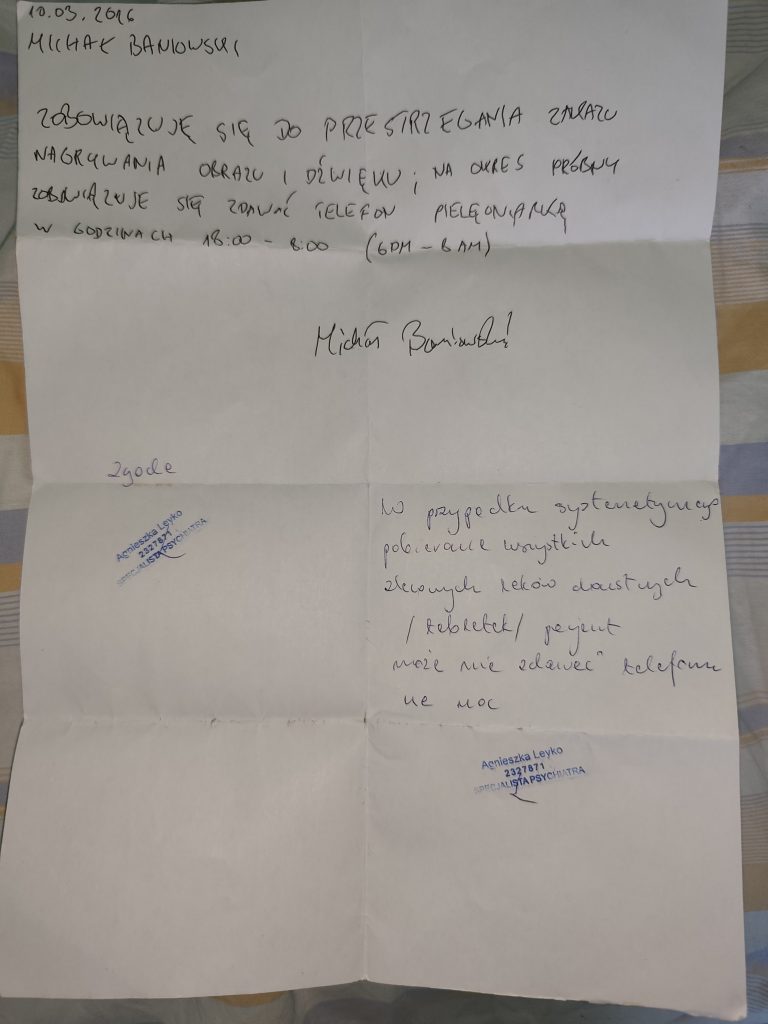 10.03.2026
MICHAŁ BANIOWSKI
ZOBOWIĄZUJĘ SIĘ DO PRZESTRZEGANIA ZAKAZU
NAGRYWANIA OBRAZU I DŹWIĘKU; NA OKRES PRÓBNY
ZOBOWIĄZUJE SIĘ ZDAWAĆ TELEFON PIELĘGNIARKĄ
W GODZINACH 18:00 - 8:00 (6PM - 8AM)
Michał Baniowski
Zgoda
Agnieszka Leyko
2327871
SPECJALISTA PSYCHIATRA
W przypadku systematycznego
pobierania wszystkich
zleconych leków doustnych
/tabletek/ pacjent
może nie zdawać telefonu
na noc
Agnieszka Leyko
2327871
SPECJALISTA PSYCHIATRA